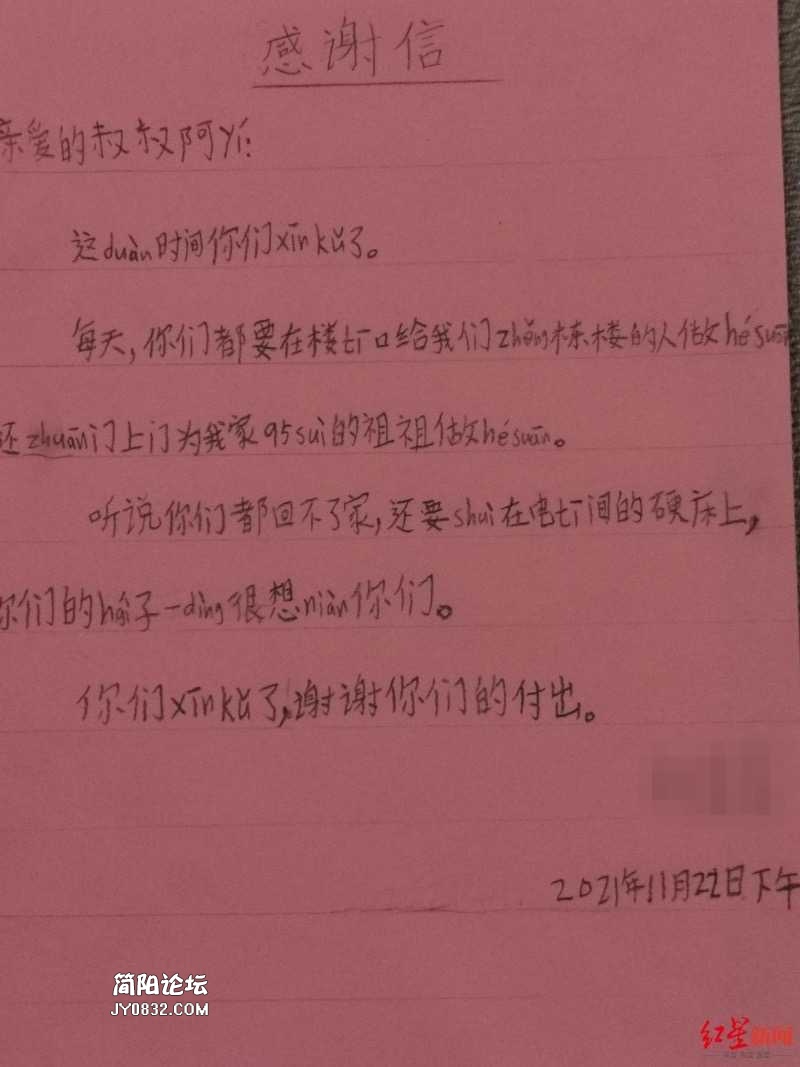 感谢信
亲爱的叔叔阿yí:
这duàn时间你们xīnkǔ了。
每天,你们都要在楼tī口给我们zhěng栋楼的人做hésuān
还zhuān门上门为我家95suì的祖祖做hésuān。
听说你们都回不了家,还要shuì在电tī间的硬床上,
你们的hái子一dìng很想niàn你们。
你们xīnkǔ了,谢谢你们的付出。
2021年11月22日下午
简阳论坛
JY0832.COM
红星新闻